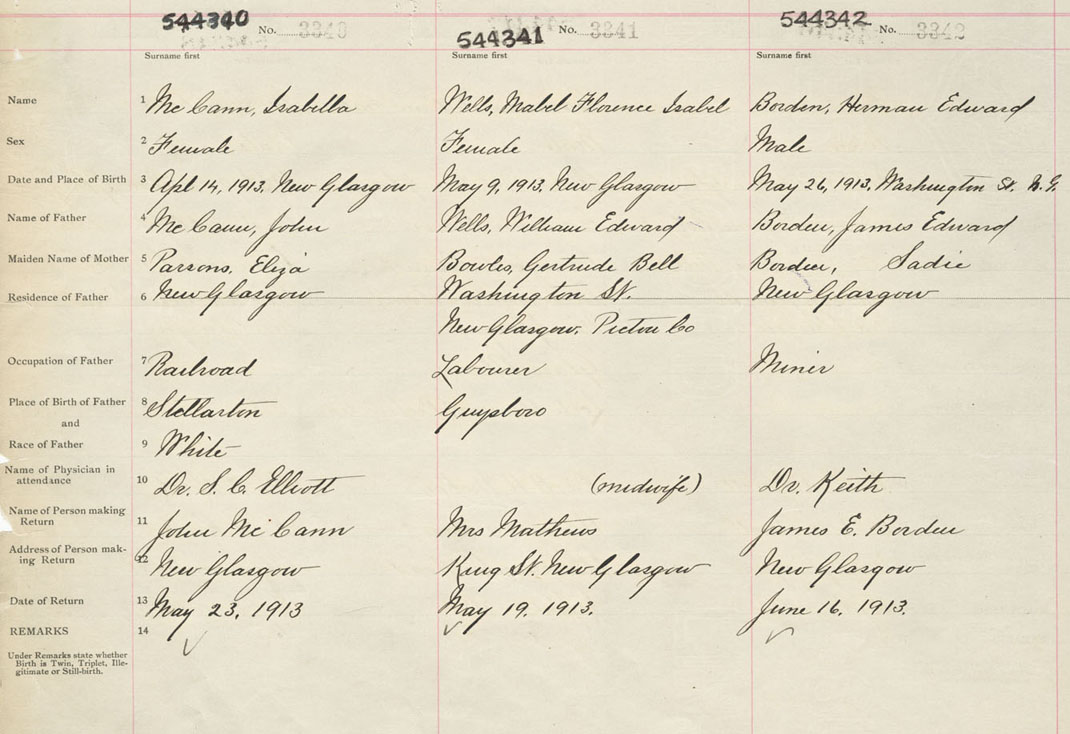 544340 No. 3340 544341 No. 3341 544342 No. 3342
Surname first Surname first Surname first
Name 1 Mc Cann, Isabella Wells, Mabel Florence Isabel Borden, Herman Edward
Sex 2 Female Female Male
Date and Place of Birth 3 Apl 14, 1913, New Glasgow May 9, 1913, New Glasgow May 26, 1913, Washington St. N.G.
Name of Father 4 Mc Cann, John Wells, William Edward Borden, James Edward
Maiden Name of Mother 5 Parsons, Eliza Bowles, Gertrude Bell Borden, Sadie
Residence of Father 6 New Glasgow Washington St. New Glasgow
New Glasgow, Pictou Co
Occupation of Father 7 Railroad Labourer Miner
Place of Birth of Father 8 Stellarton Guysboro
and
Race of Father 9 White
Name of Physician in
attendance 10 Dr. S. C. Elliott (midwife) Dr. Keith
Name of Person making
Return 11 John Mc Cann Mrs Mathews James E. Borden
Address of Person mak-
ing Return 12 New Glasgow King St. New Glasgow New Glasgow
Date of Return 13 May 23, 1913 May 19, 1913. June 16, 1913.
REMARKS 14
Under Remarks state whether
Birth is Twin, Triplet, Ille-
gitimate or Still-birth.